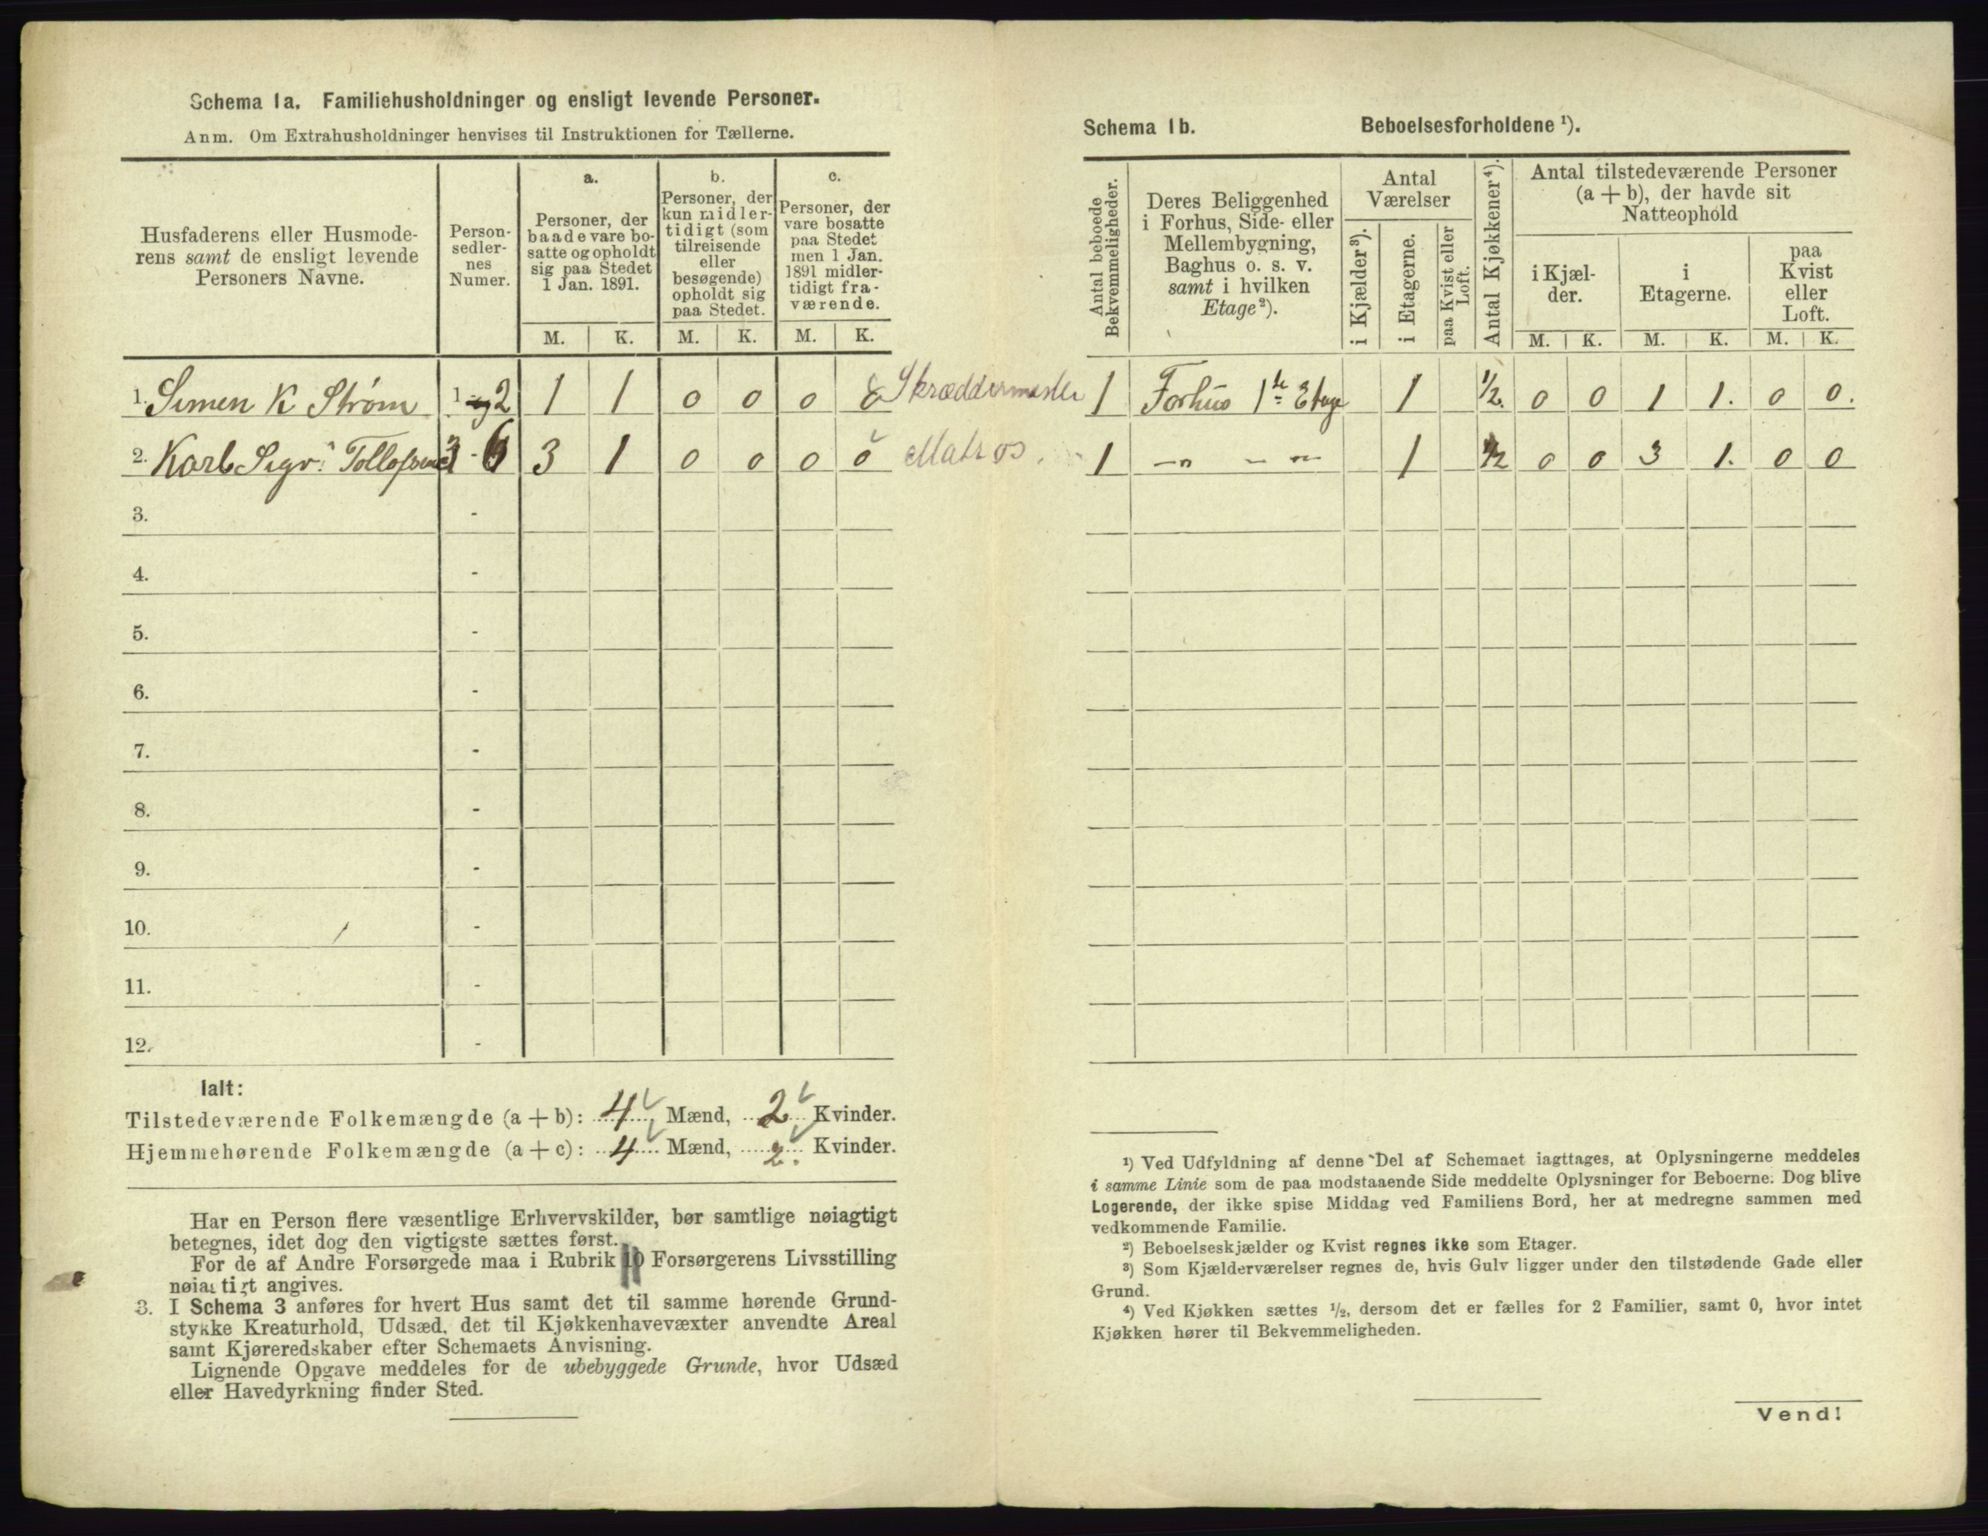 Schema 1a. Familiehusholdninger og ensligt levende Personer.
Anm. Om Extrahusholdninger henvises til Instruktionen for Tællerne.
Husfaderens eller Husmode-
rens samt de ensligt levende
Personers Navne.
Person-
sedler-
nes
Numer.
a.
Personer, der
baade vare bo-
satte og opholdt
sig paa Stedet
1 Jan. 1891.
b.
Personer, der
kun midler-
tidigt (som
tilreisende
eller
besøgende)
opholdt sig
paa Stedet.
c.
Personer, der
vare bosatte
paa Stedet
men 1 Jan.
1891 midler-
tidigt fra-
værende.
M. K. M. K. M. K.
1. Simen K Strøm 1 og 2 1 1 0 0 0 0 Skræddermester
2. Karl Sigv. Tollofsen 3 - 6 3 1 0 0 0 0 Matros.
3. -
4. -
5. -
6. -
7. -
8. -
9. -
10. -
11. -
12. -
Ialt:
Tilstedeværende Folkemængde (a + b): 4 Mænd, 2 Kvinder.
Hjemmehørende Folkemængde (a + c): 4 Mænd, 2. Kvinder.
Har en Person flere væsentlige Erhvervskilder, bør samtlige nøiagtigt
betegnes, idet dog den vigtigste sættes først.
For de af Andre Forsørgede maa i Rubrik 10 Forsørgerens Livsstilling
nøiagtigt angives.
3. I Schema 3 anføres for hvert Hus samt det til samme hørende Grund-
stykke Kreaturhold, Udsæd, det til Kjøkkenhavevæxter anvendte Areal
samt Kjøreredskaber efter Schemaets Anvisning.
Lignende Opgave meddeles for de ubebyggede Grunde, hvor Udsæd
eller Havedyrkning finder Sted.
Schema 1b. Beboelsesforholdene ¹).
Antal beboede
Bekvemmeligheder.
Deres Beliggenhed
i Forhus, Side- eller
Mellembygning,
Baghus o. s. v.
samt i hvilken
Etage ²).
Antal
Værelser
i Kjælder ³).
i Etagerne.
paa Kvist eller
Loft.
Antal Kjøkkener ⁴).
Antal tilstedeværende Personer
(a + b), der havde sit
Natteophold
i Kjæl-
der.
i
Etagerne.
paa
Kvist
eller
Loft.
M. K. M. K. M. K.
1 Forhus 1te Etage 1 1/2 0 0 1 1. 0 0.
1 -"- - -"- 1 1/2 0 0 3 1. 0 0
¹) Ved Udfyldning af denne Del af Schemaet iagttages, at Oplysningerne meddeles
i samme Linie som de paa modstaaende Side meddelte Oplysninger for Beboerne. Dog blive
Logerende, der ikke spise Middag ved Familiens Bord, her at medregne sammen med
vedkommende Familie.
²) Beboelseskjælder og Kvist regnes ikke som Etager.
³) Som Kjælderværelser regnes de, hvis Gulv ligger under den tilstødende Gade eller
Grund.
⁴) Ved Kjøkken sættes ½, dersom det er fælles for 2 Familier, samt 0, hvor intet
Kjøkken hører til Bekvemmeligheden.
Vend!